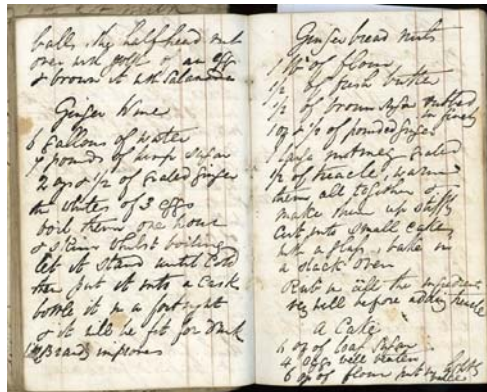 balls, the half head
over with yolk of an egg
& brown it with Salamander
Ginger Wine
6 Gallons of water
7 pounds of sugar
2 ozs & 1/2 of grated ginger
the whites of 3 eggs
boil them one hour
& skim whilst boiling
let it stand until cold
then put it into a cask
bottle it in a fortnight
& it will be fit for drink
Brandy improves
Ginger bread nuts
1 lb of flour
1/2 of fresh butter
1/2 of brown sugar
in finely
1 oz & 1/2 of pounded ginger
1 large nutmeg grated
1/2 of treacle, warm
them all together &
make them up stiffly
cut into small cakes
with a glass, bake in
a slack oven
Rub in all the ingredients
very well before adding treacle
a Cake
6 oz of loaf sugar
4 eggs well beaten
6 oz of flour put in